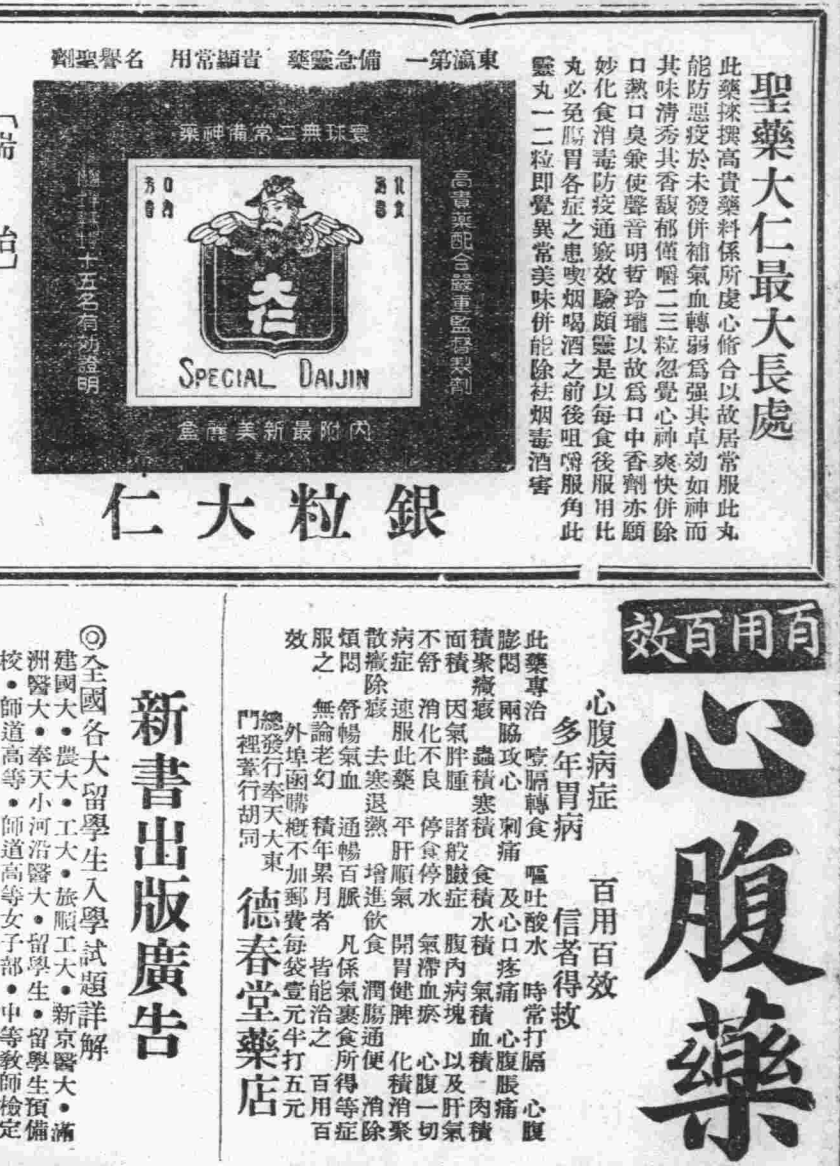 聖藥大仁最大長處
此藥採撰高貴藥料係所虔心脩合以故居常服此丸
能防惡疫於未發併補氣血轉弱爲强其卓効如神而
其味淸秀其香馥郁僅嚼二三粒忽覺心神爽快併除
口熱口臭兼使聲音明哲玲瓏以故爲口中香劑亦願
妙化食消毒防疫通竅效驗頗靈是以每食後服用此
丸必免膓胃各症之患喫烟喝酒之前後咀嚼服角此
靈丸一二粒即覺異常美味併能除袪烟毒酒害
東瀛第一 備急靈藥 貴顯常用 名譽聖劑
寰球無二常備神藥
高貴藥配合嚴重監督製劑
化食
消毒
口內
芳香
大仁
SPECIAL DAIJIN
十五名有効證明
內附最新美麗盒
銀粒大仁
百用百效
心腹藥
心腹病症 百用百效
多年胃病 信者得救
此藥專治 噎膈轉食 嘔吐酸水 時常打膈 心腹
膨悶 兩脇攻心 刺痛 及心口疼痛 心腹脹痛
積聚癥瘕 蟲積寒積 食積水積 氣積血積 肉積
面積 因氣胖腫 諸般臌症 腹內病塊 以及肝氣
不舒 消化不良 停食停水 氣滯血瘀 心腹一切
病症 速服此藥 平肝順氣 開胃健脾 化積消聚
散癥除瘕 去寒退熱 增進飲食 潤膓通便 消除
煩悶 舒暢氣血 通暢百脈 凡係氣裹食所得等症
服之 無論老幻 積年累月者 皆能治之 百用百
效
外埠函購槪不加郵費每袋壹元半打五元
總發行奉天大東
門裡葦行胡同
德春堂藥店
新書出版廣吿
◎全國各大留學生入學試題詳解
建國大•農大•工大•旅順工大•新京醫大•滿
洲醫大•奉天小河沿醫大•留學生•留學生預備
校•師道高等•師道高等女子部•中等敎師檢定